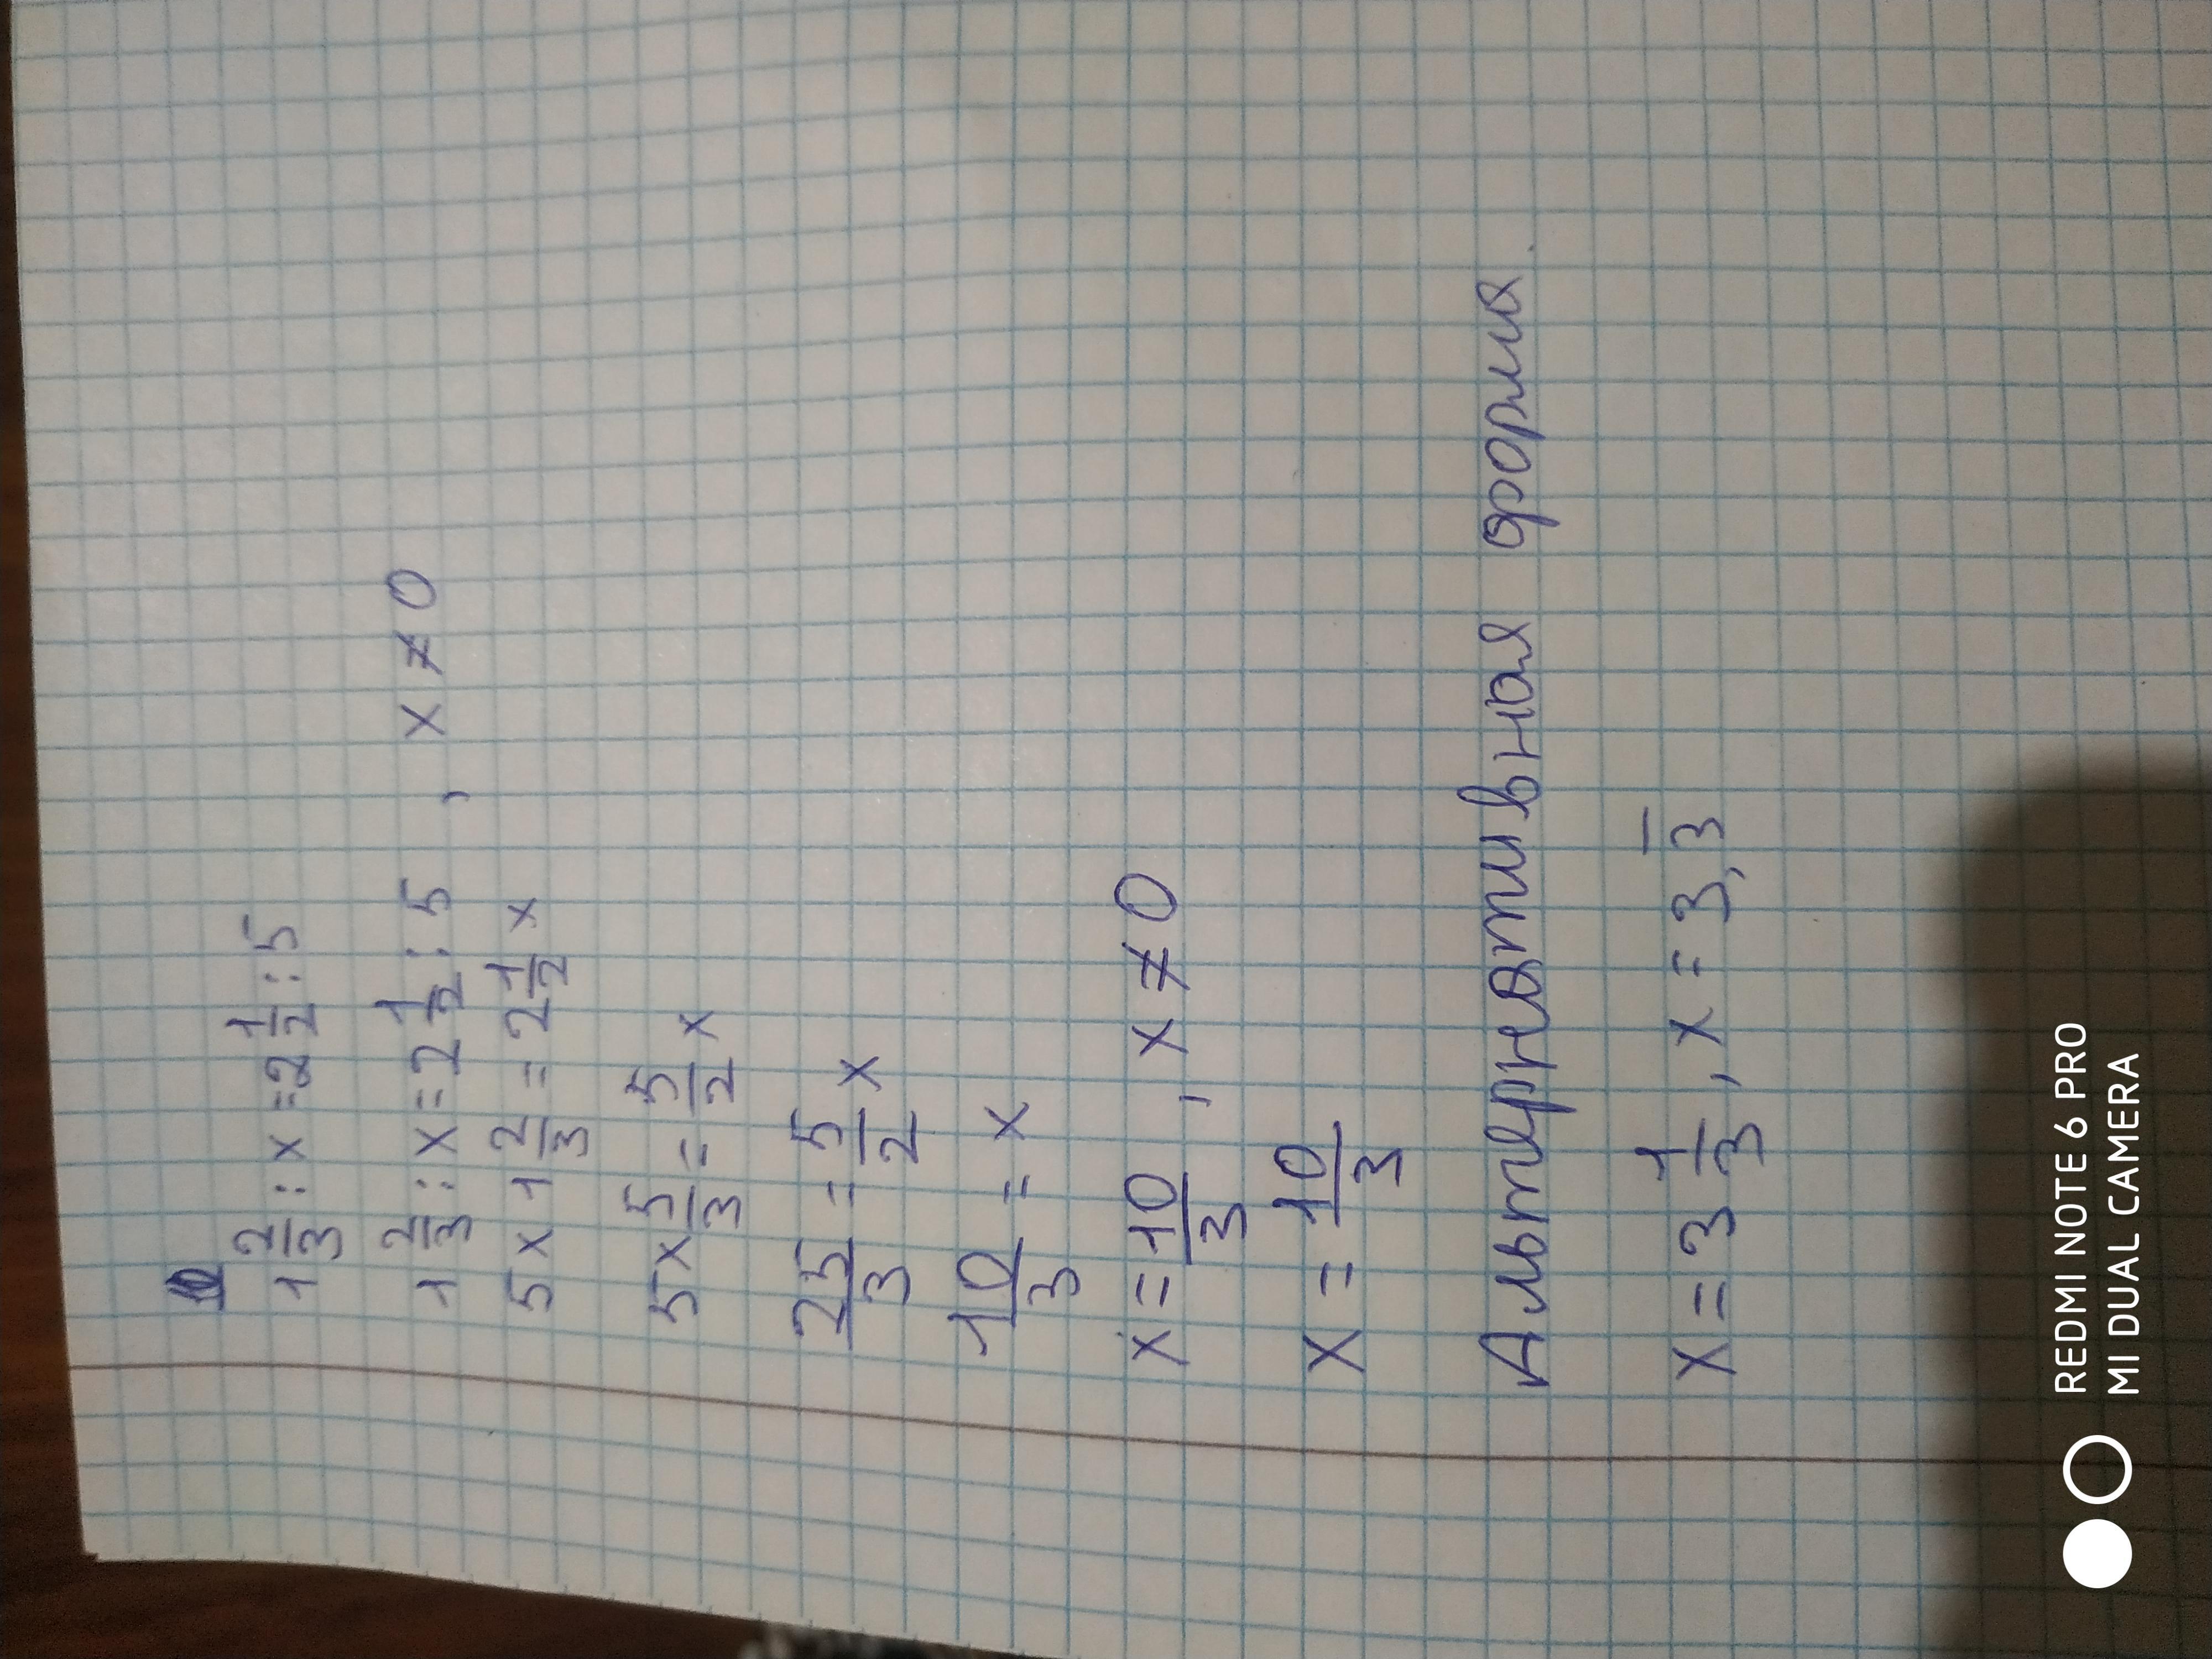 1 2/3 : x = 2 1/2 : 5
1 2/3 : x = 2 1/2 : 5 , x ≠ 0
5 x 1 2/3 = 2 1/2 x
5 x 5/3 = 5/2 x
25/3 = 5/2 x
10/3 = x
x = 10/3 , x ≠ 0
x = 10/3
Альтернативная форма.
x = 3 1/3 , x = 3,3̅
REDMI NOTE 6 PRO
MI DUAL CAMERA